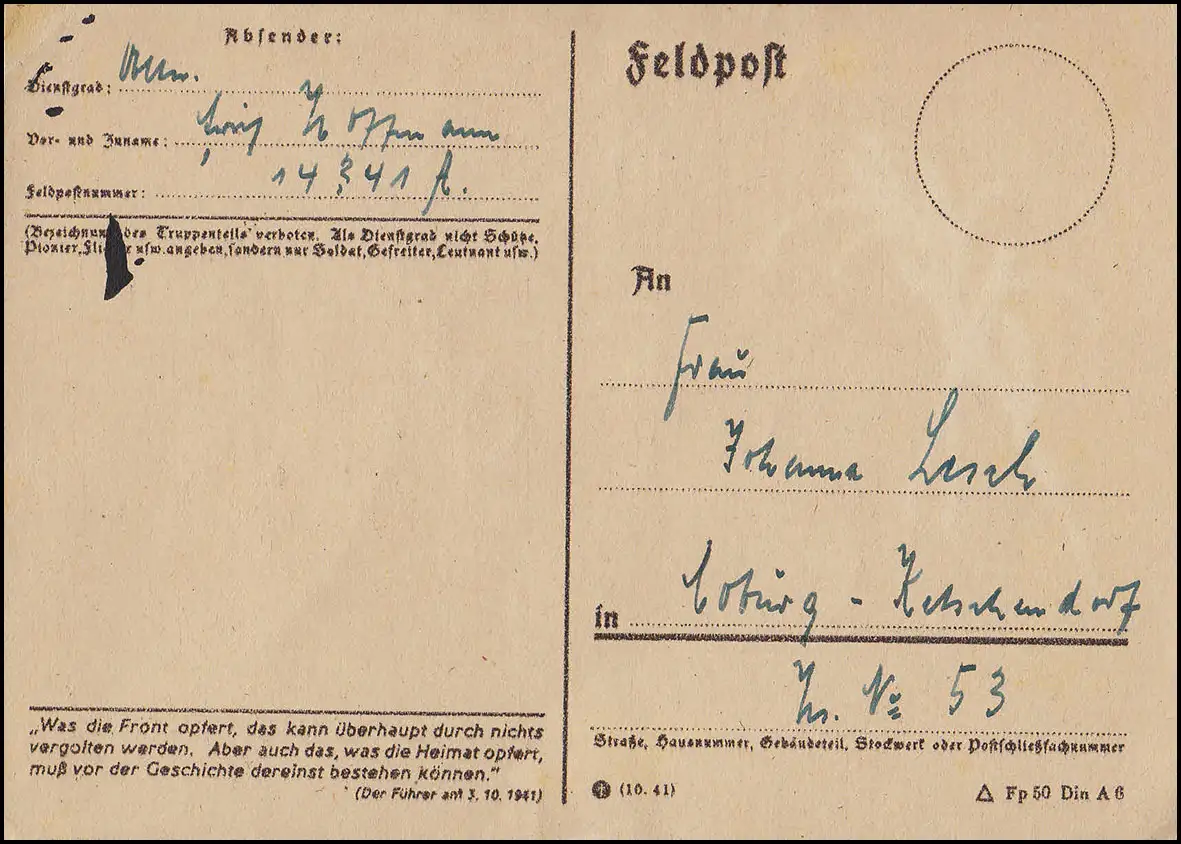 Absender:
Dienstgrad:
Vor- und Zuname: Hoffmann
Feldpostnummer: 14341 A.
(Bezeichnung des Truppenteils verboten. Als Dienstgrad nicht Schütze,
Pionier, Flieger usw. angeben, sondern nur Soldat, Gefreiter, Leutnant usw.)
„Was die Front opfert, das kann überhaupt durch nichts
vergolten werden. Aber auch das, was die Heimat opfert,
muß vor der Geschichte dereinst bestehen können.“
(Der Führer am 3. 10. 1941)
Feldpost
An
Frau
Johanna Lesch
in Coburg - Ketschendorf
Hs. № 53
Straße, Hausnummer, Gebäudeteil, Stockwerk oder Postschließfachnummer
(10. 41)
△ Fp 50 Din A 6